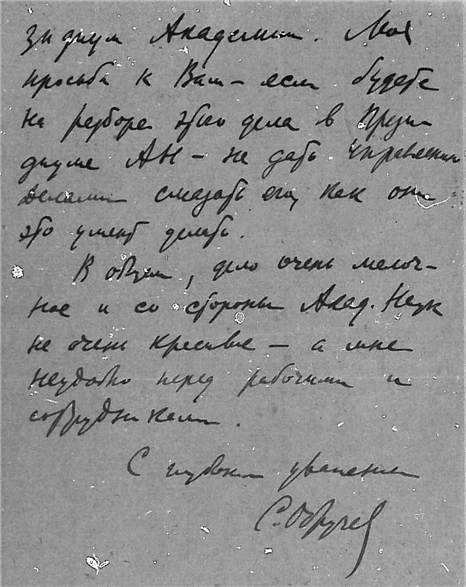 зидиум Академии. Моя
просьба к Вам – если будете
на разборе этого дела в Прези-
диуме АН – не дать Управлению
делами смазать его, как они
это умеют делать.
В общем, дело очень мелоч-
ное и со стороны Акад. Наук
не очень красиво – а мне
неудобно перед рабочими и
сотрудниками.
С глубоким уважением
С. Обручев